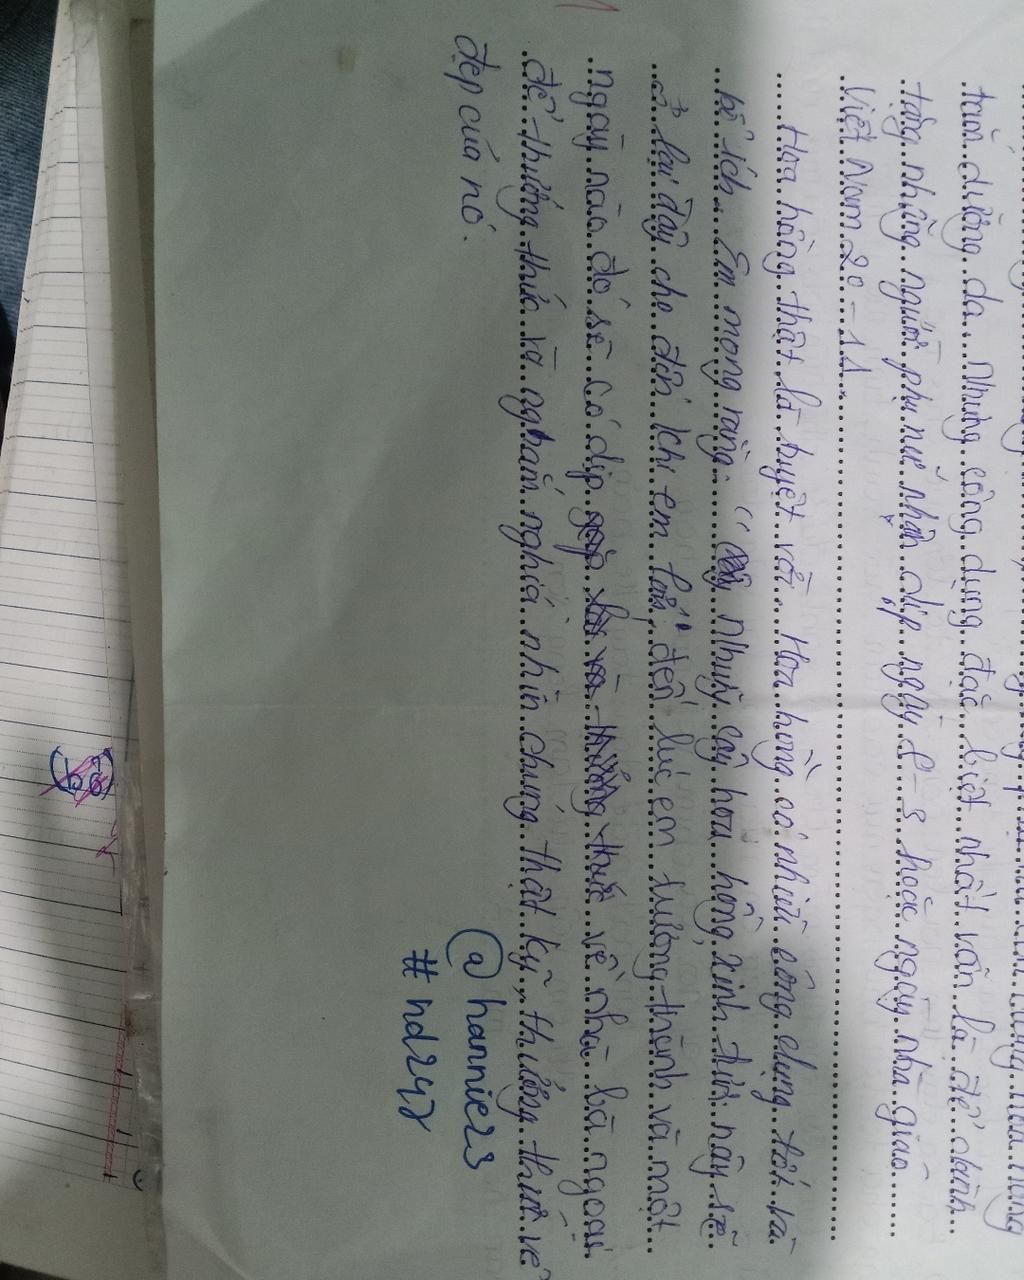 tắm dưỡng da. Nhưng công dụng đặc biệt nhất vẫn là để dành
tặng những người phụ nữ nhân dịp ngày 8-3 hoặc ngày nhà giáo
Việt Nam 20-11.
Hoa hồng thật là tuyệt vời. Hoa hồng có nhiều công dụng tốt và
bổ ích. Em mong rằng những cây hoa hồng xinh tươi này sẽ
ở lại đây cho đến khi em lớn, đến lúc em trưởng thành và một
ngày nào đó sẽ có dịp về nhà bà ngoại
để thưởng thức và ngắm nghía nhìn chúng thật kỹ, thưởng thức vẻ
đẹp của nó.
@hannie23
#nd247